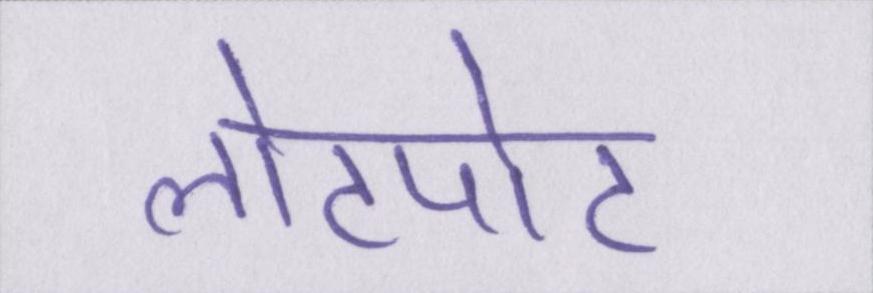 लोटपोट